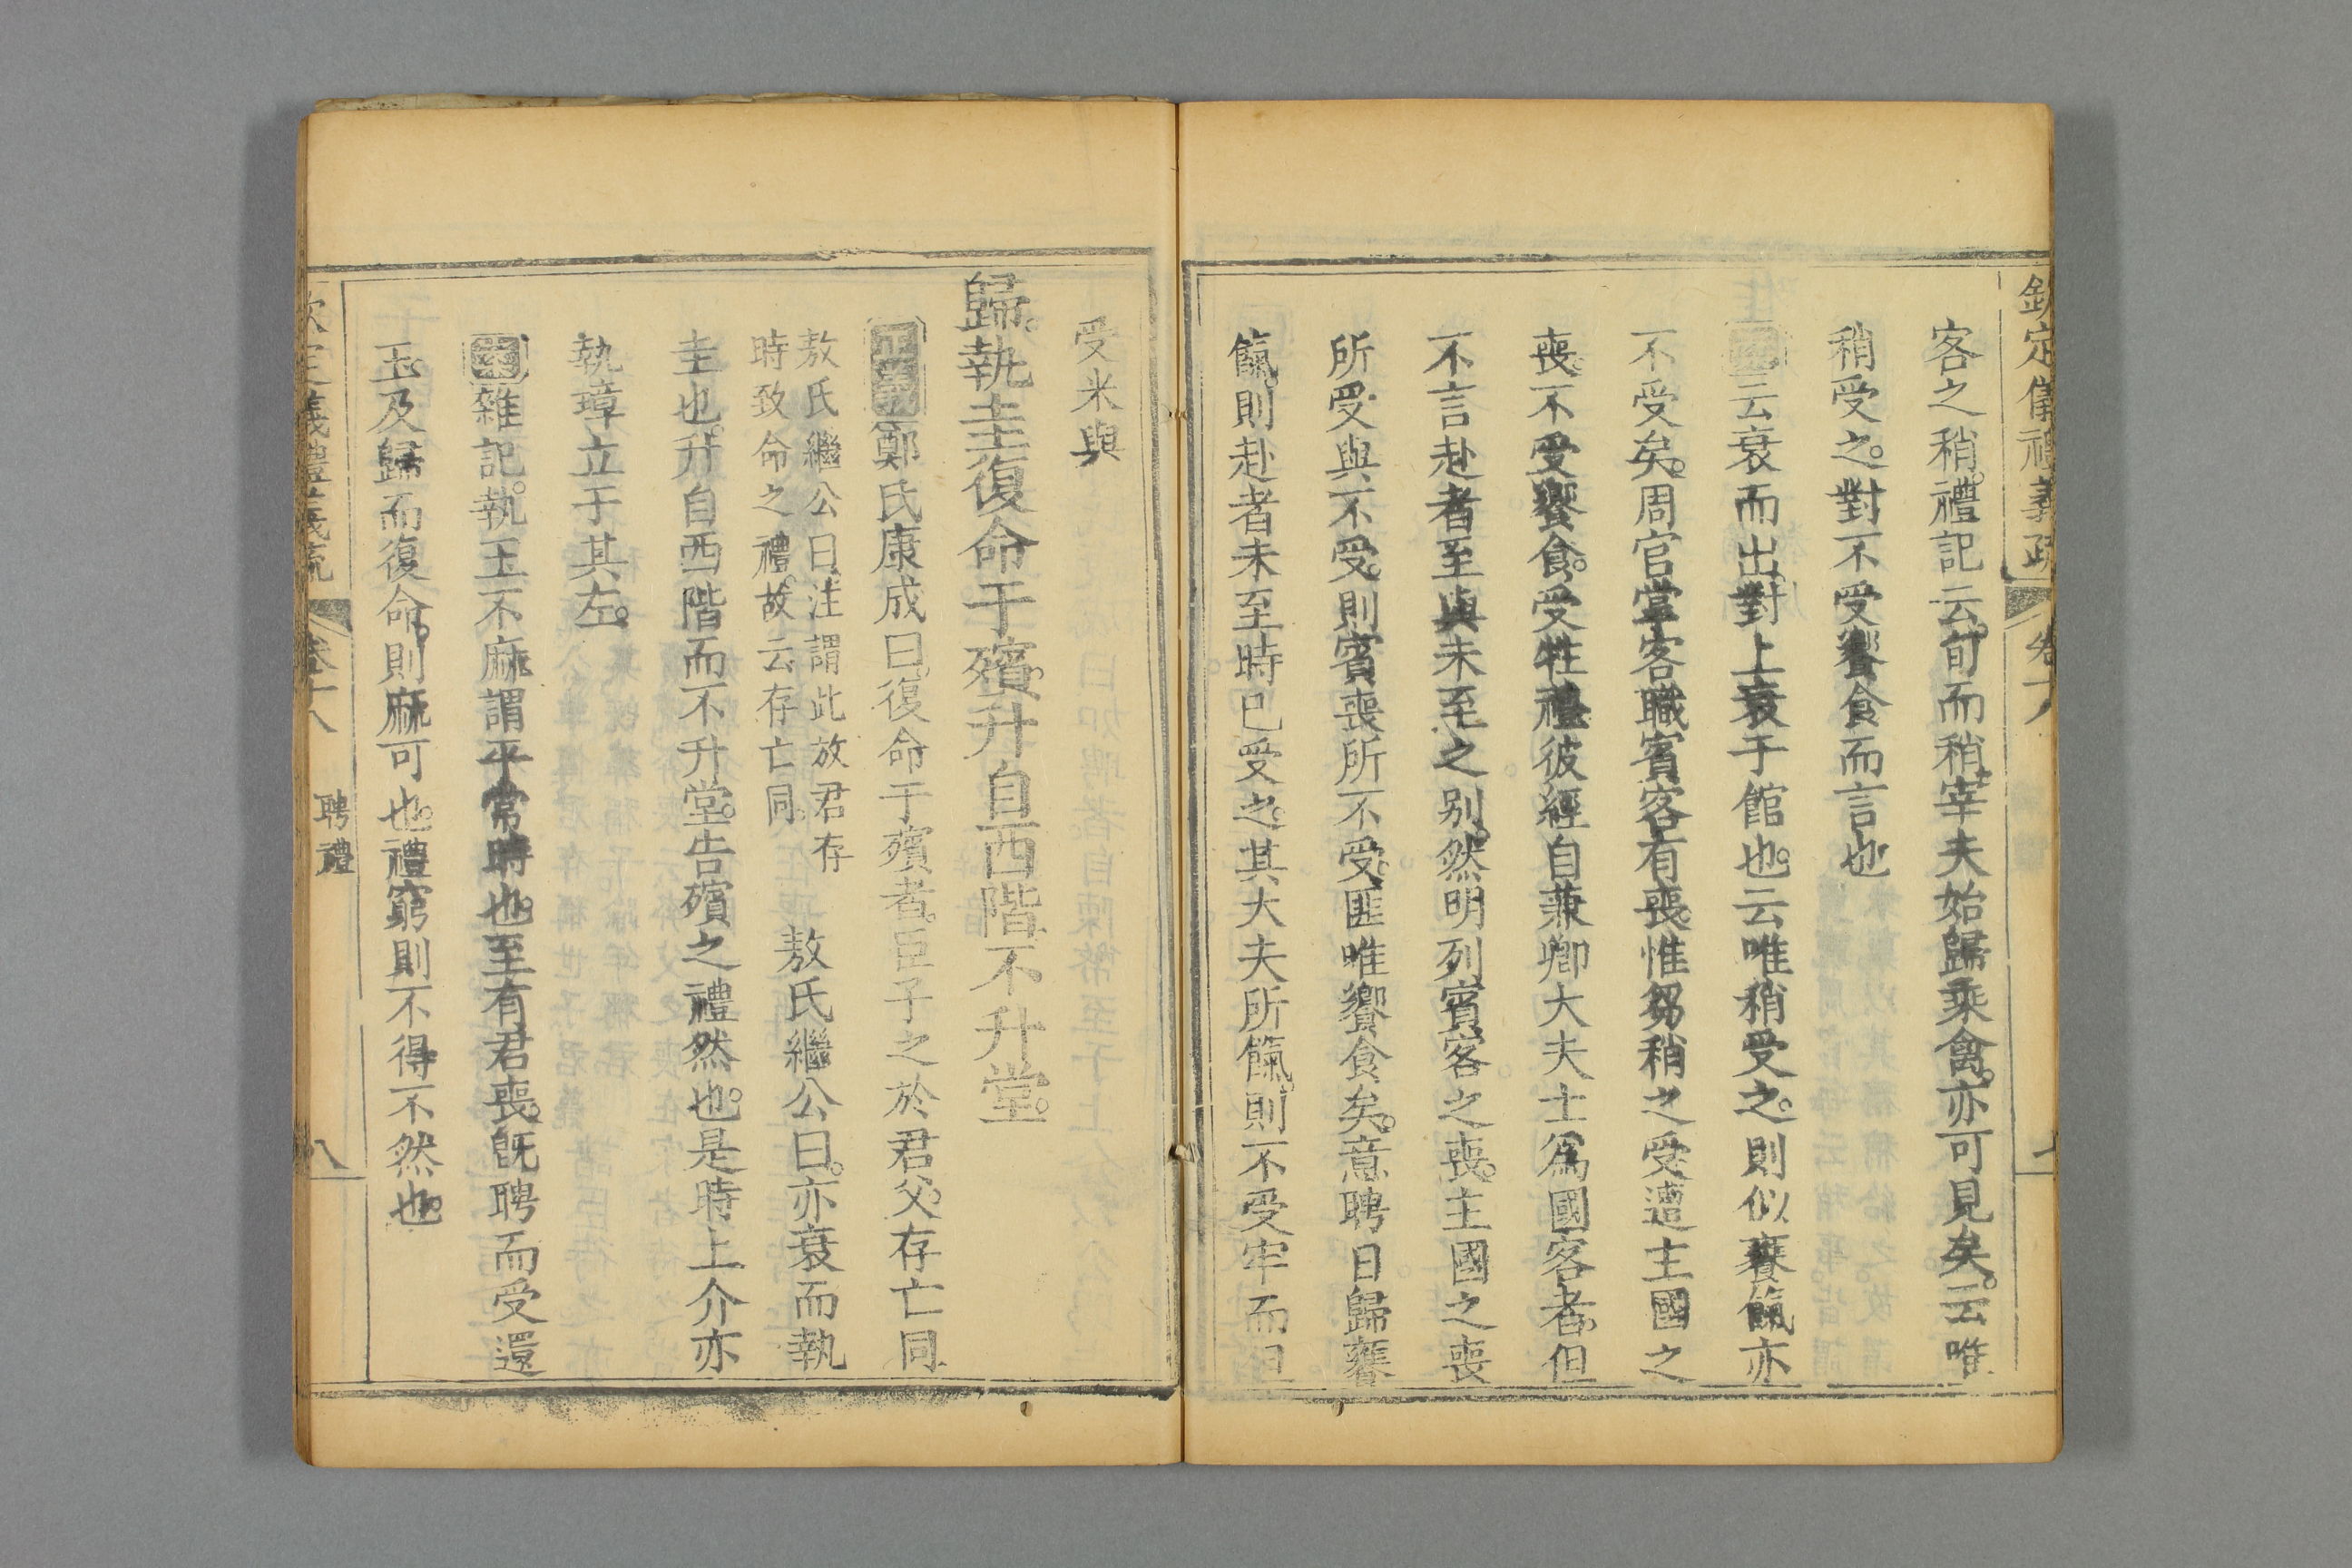 欽定儀禮義疏 卷十八
客之稍。禮記云。旬而稍。宰夫始歸乘禽。亦可見矣。云唯
稍受之。對不受饗食而言也
云衰而出。對上衰于館也。云唯稍受之。則似饔餼亦
不受矣。周官掌客職。賓客有喪。惟芻稍之受。遭主國之
喪。不受饗食。受牲禮。彼經自兼卿大夫士爲國客者。但
不言赴者至與未至之别。然明列賓客之喪。主國之喪
所受與不受。則賓喪所不受。匪唯饗食矣。意聘日歸饔
餼。則赴者未至時已受之。其大夫所餼。則不受牢而但
受米與
歸。執圭復命于殯。升自西階。不升堂。
正義 鄭氏康成曰。復命于殯者。臣子之於君父。存亡同
敖氏繼公曰。注謂此放君存
時致命之禮。故云存亡同。
敖氏繼公曰。亦衰而執
圭也。升自西階而不升堂。告殯之禮然也。是時上介亦
執璋立于其左。
案 雜記。執玉不麻。謂平常時也。至有君喪。旣聘而受還
玉。及歸而復命。則麻可也。禮窮則不得不然也。
欽定儀禮義疏 卷十八 聘禮 八